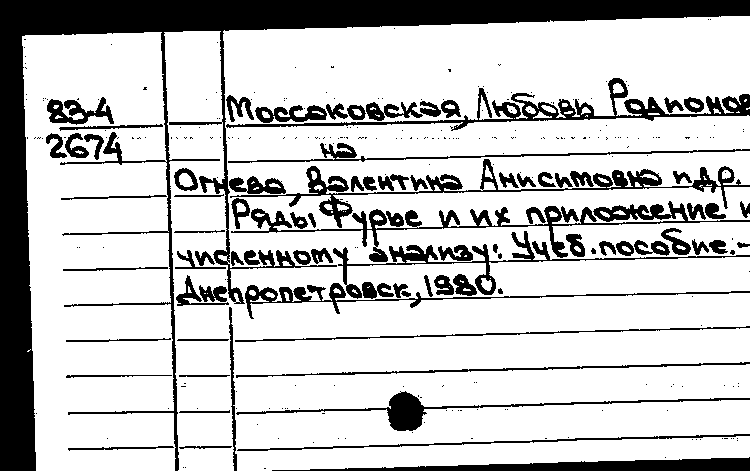 83-4 Моссаковская, Любовь Родионов
2674 на.
Огнева, Валентина Анисимовна и др.
Ряды Фурье и их приложение к
численному анализу: Учеб. пособие.-
Днепропетровск, 1980.